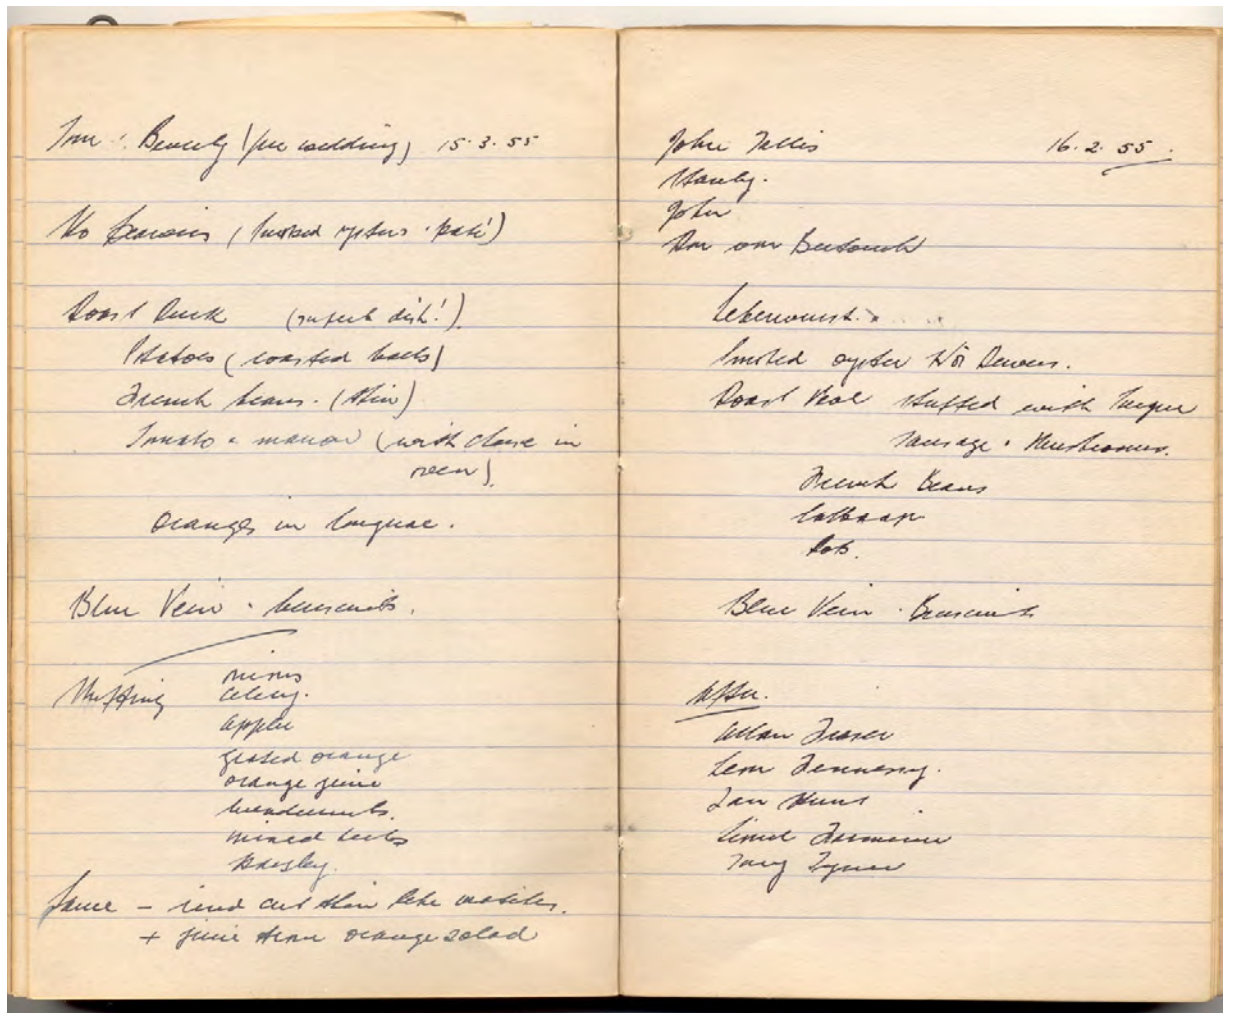 Tom + Beverly (pre wedding) 15.3.55
(smoked oysters + paté)
Roast Duck (superb dish!)
Potatoes (roasted halls)
French beans. (thin)
Tomato + marrow (with cheese in
oven)
Oranges in Cognac.
Blue Vein + biscuits.
Stuffing onions
celery.
apple
grated orange
orange juice
breadcrumbs.
mixed herbs
Parsley.
Sauce – rind cut thin like matches.
+ juice from orange salad
John Tallis 16.2.55.
Stanley.
John
Don
Leberwurst.
Smoked oyster
Roast Veal stuffed with
sausage + Mushrooms.
French Beans
Blue Vein + Biscuits
After.
Allan Fraser
Len Hennessy.
Ian Hunt
Lionel
Tony